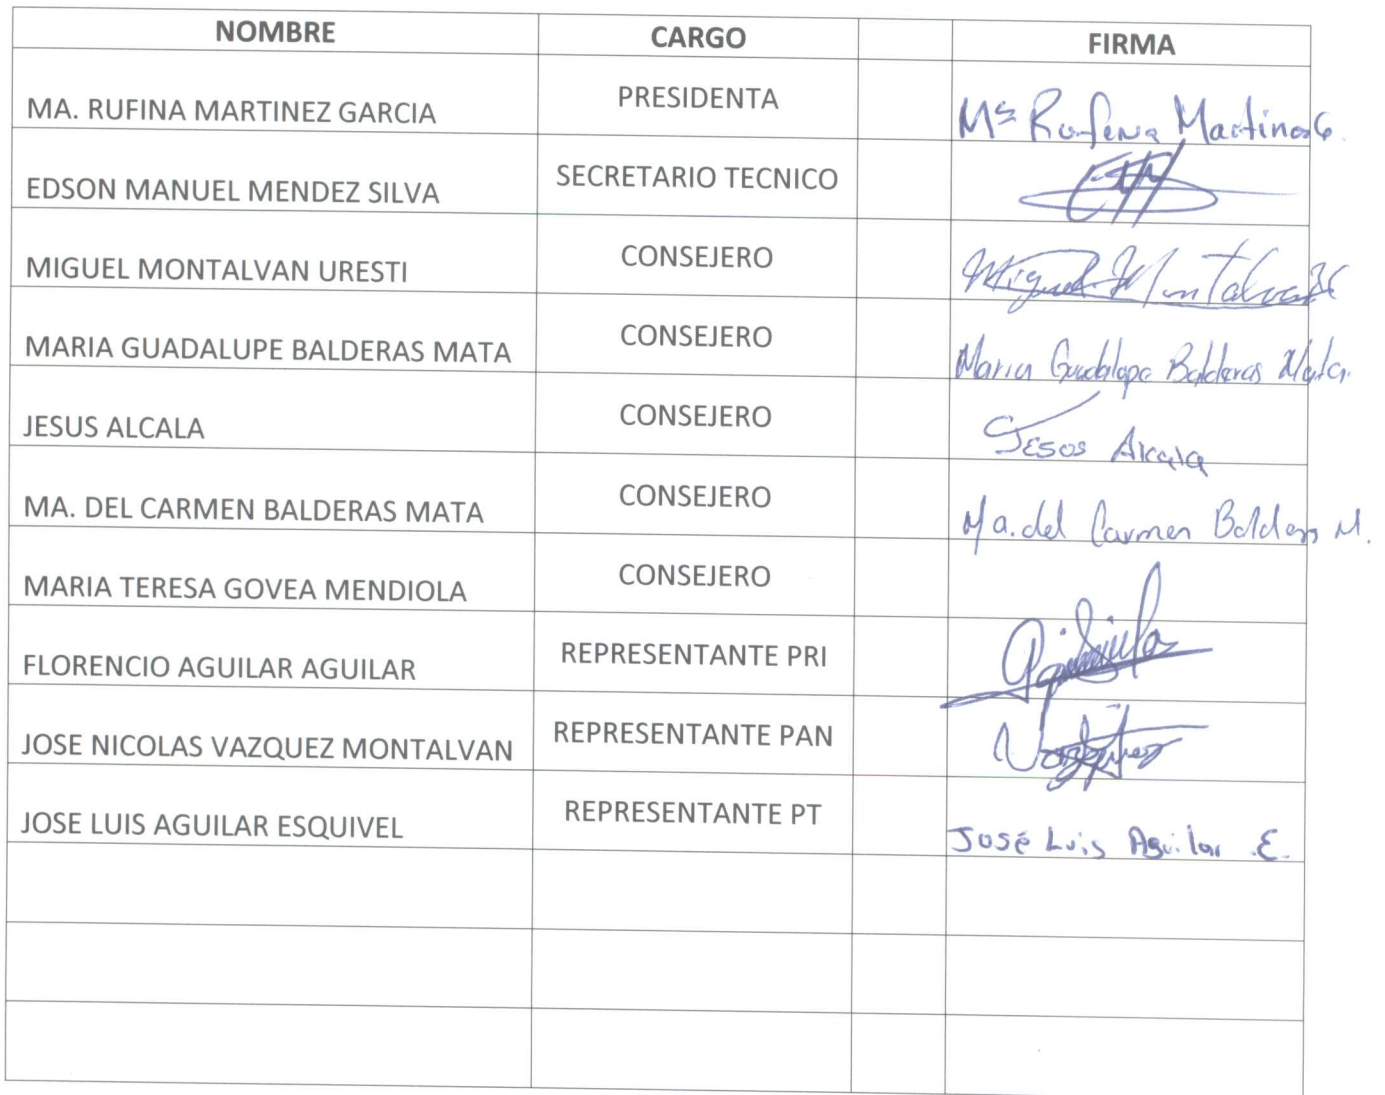 NOMBRE CARGO FIRMA
MA. RUFINA MARTINEZ GARCIA PRESIDENTA Mª Rufina Martinez G.
EDSON MANUEL MENDEZ SILVA SECRETARIO TECNICO
MIGUEL MONTALVAN URESTI CONSEJERO Miguel Montalvan
MARIA GUADALUPE BALDERAS MATA CONSEJERO Maria Guadalupe Balderas Mata
JESUS ALCALA CONSEJERO Jesos Alcala
MA. DEL CARMEN BALDERAS MATA CONSEJERO Ma. del Carmen Balderas M.
MARIA TERESA GOVEA MENDIOLA CONSEJERO
FLORENCIO AGUILAR AGUILAR REPRESENTANTE PRI
JOSE NICOLAS VAZQUEZ MONTALVAN REPRESENTANTE PAN
JOSE LUIS AGUILAR ESQUIVEL REPRESENTANTE PT José Luis Aguilar .E.